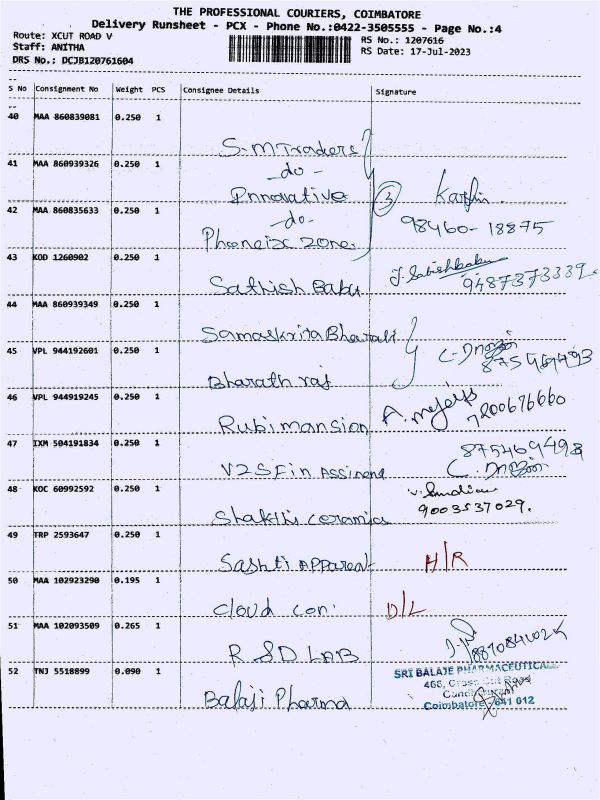 THE PROFESSIONAL COURIERS, COIMBATORE
Delivery Runsheet - PCX - Phone No.:0422-3505555 - Page No.:4
Route: XCUT ROAD V RS No.: 1207616
Staff: ANITHA RS Date: 17-Jul-2023
DRS No.: DCJB120761604
S No Consignment No Weight PCS Consignee Details Signature
40 MAA 860839081 0.250 1
S-M Traders
41 MAA 860939326 0.250 1
-do-
Innovative 3
42 MAA 860835633 0.250 1
-do- 98460-18875
Phoneix zone
43 KOD 1260902 0.250 1
Sathish Babu J. Satishbabu 9487373339
44 MAA 860939349 0.250 1
Samaskrita Bharati
45 VPL 944192601 0.250 1
Bharath raj 8754694493
46 VPL 944919245 0.250 1
Rubi mansion 7200676660
47 IXM 504191834 0.250 1
8754694493
V2S Fin
48 KOC 60992592 0.250 1
Shakthi ceramics 9003537029.
49 TRP 2593647 0.250 1
Sashti Apparel H/R
50 MAA 102923290 0.195 1
Cloud con: D/L
51 MAA 102093509 0.265 1
R S D LAB
52 TNJ 5518899 0.090 1
SRI BALAJE PHARMACEUTICAL
466, Cross Cut Road
Balaji Pharma
Coimbatore - 641 012